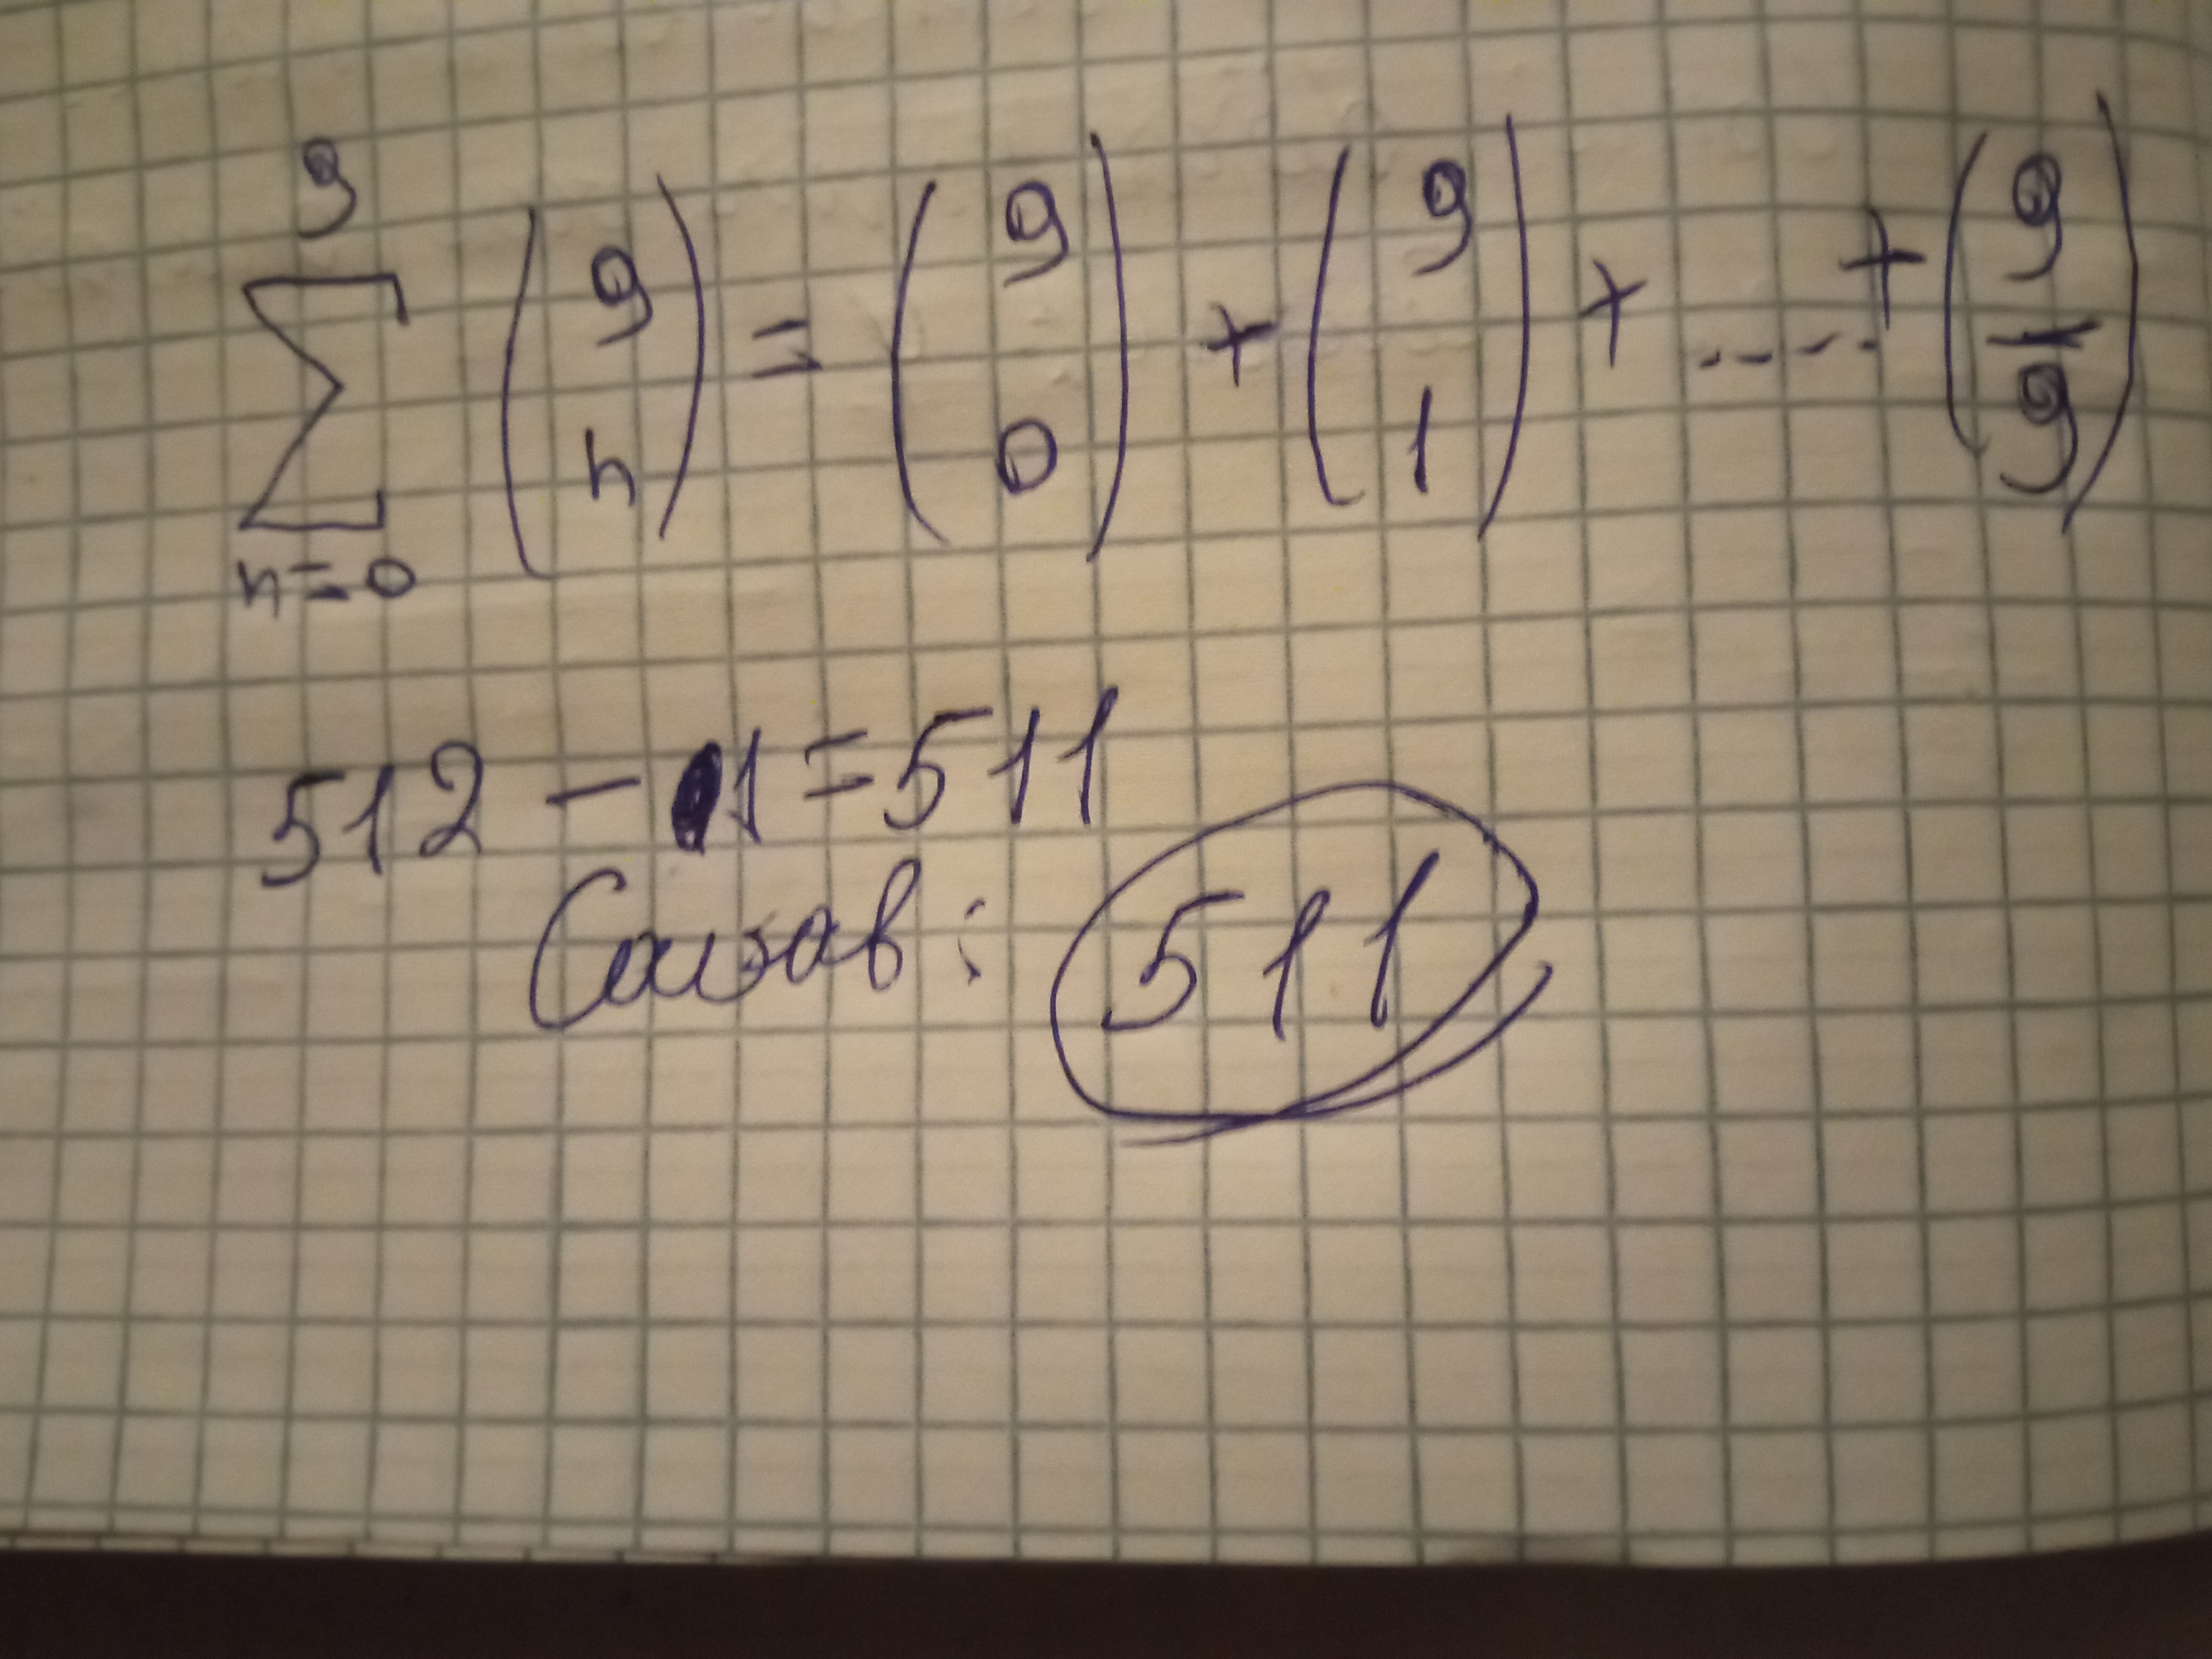 \sum_{n=0}^{9} \binom{9}{n} = \binom{9}{0} + \binom{9}{1} + ..... + \left(\frac{9}{9}\right)
512 - 1 = 511
: 511